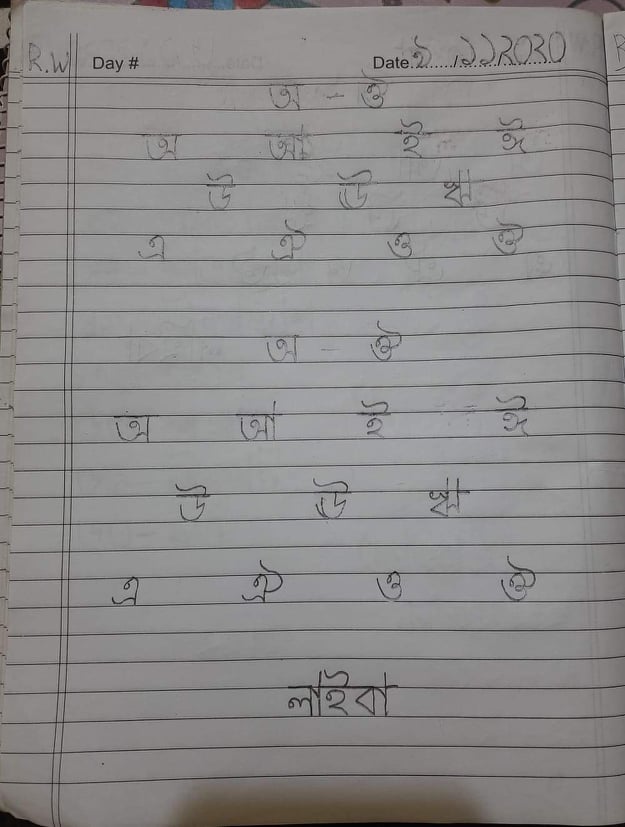 R.W Day # Date.২..../১১২০২০
অ - ঔ
অ আ ই ঈ
উ ঊ ঋ
এ ঐ ও ঔ
অ - ঔ
অ আ ই ঈ
উ ঊ ঋ
এ ঐ ও ঔ
লাইবা